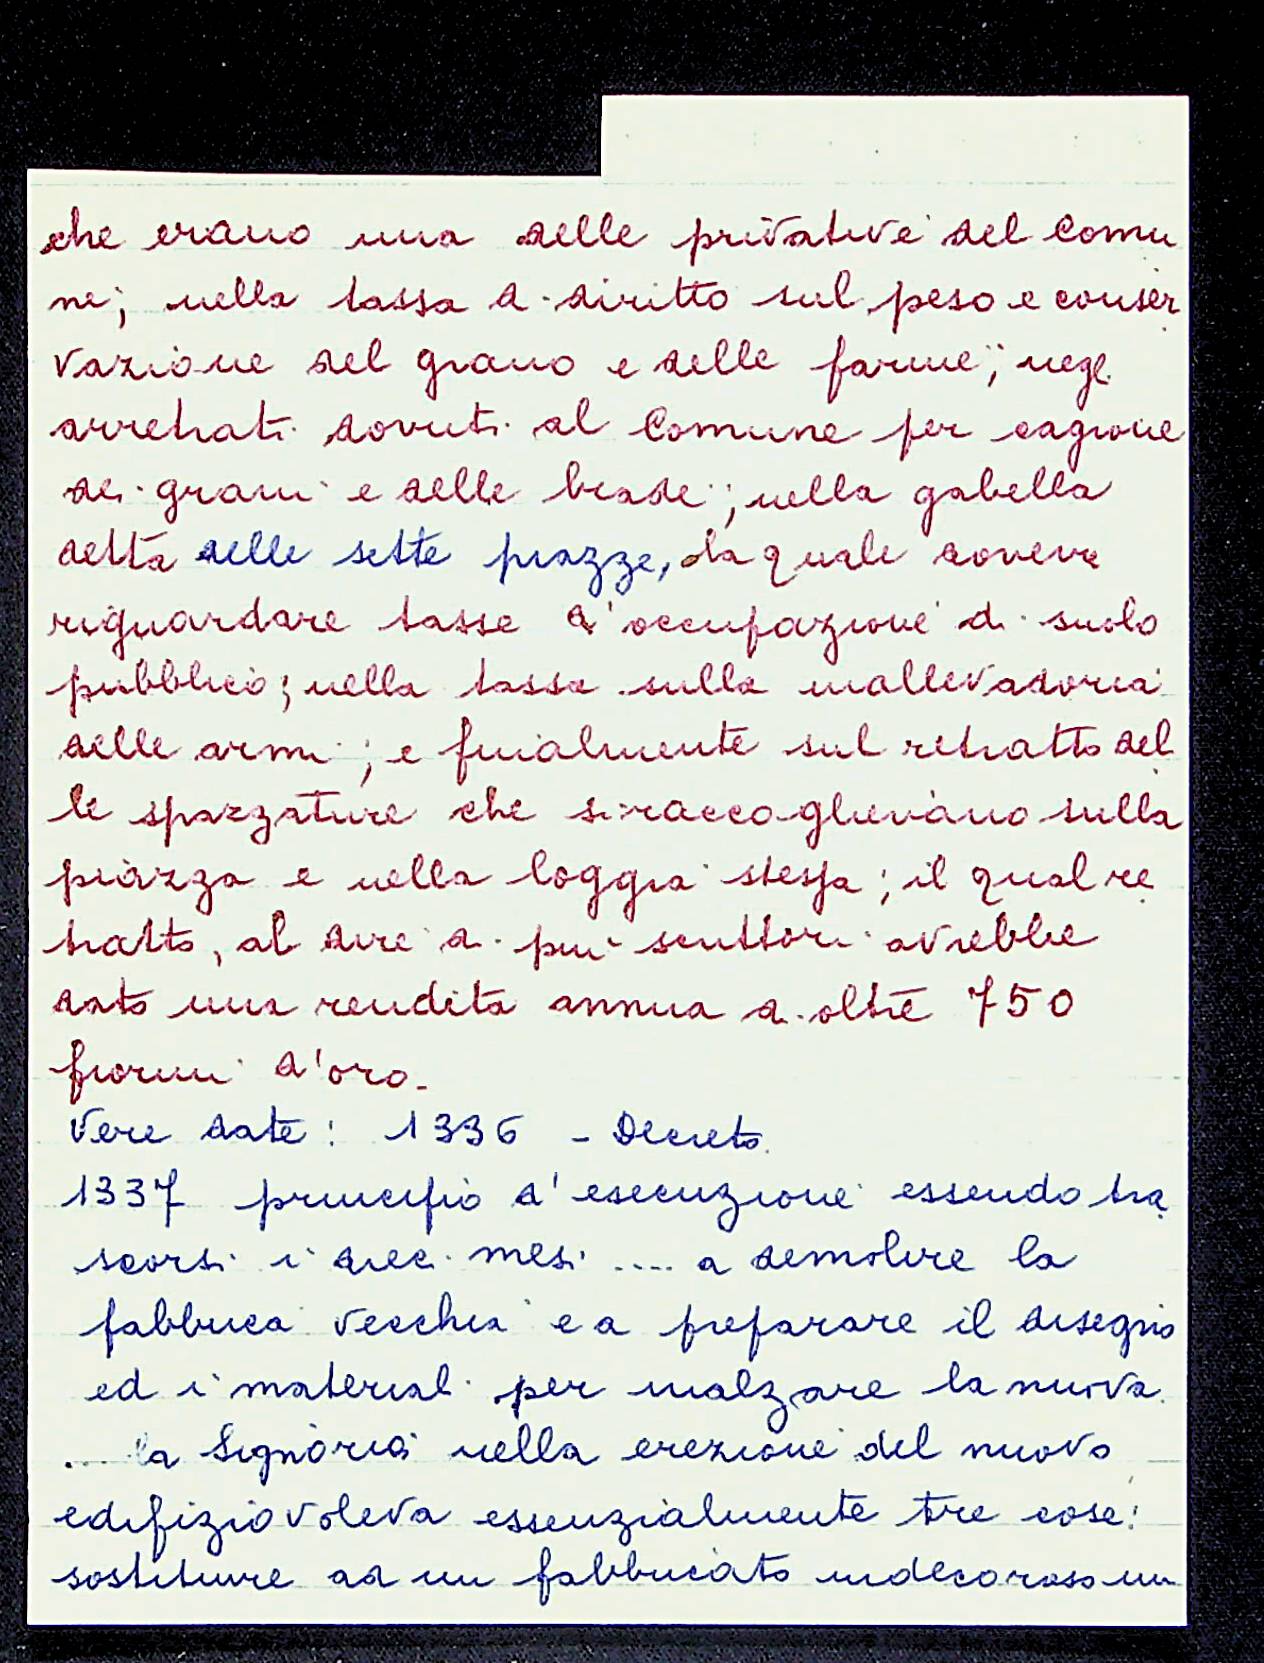 che erano una delle privative del Comu
ne; nella tassa di diritto sul peso e conser
vazione del grano e delle farine; negli
arretrati dovuti al Comune per cagione
dei grani e delle biade; nella gabella
detta delle sette piazze, la quale doveva
riguardare tasse d'occupazione di suolo
pubblico; nella tassa sulla mallevadoria
delle armi; e finalmente sul retratto del
le spazzature che si raccoglievano sulla
piazza e nella loggia stessa; il qual re
tratto, al dire di più scrittori avrebbe
dato una rendita annua di oltre 750
fiorini d'oro.
Vere date: 1336 - Decreto.
1337 principio d'esecuzione essendo tra
scorsi i dieci mesi .... a demolire la
fabbrica vecchia e a preparare il disegno
ed i materiali per inalzare la nuova.
.... la Signoria nella erezione del nuovo
edifizio voleva essenzialmente tre cose:
sostituire ad un fabbricato indecoroso un